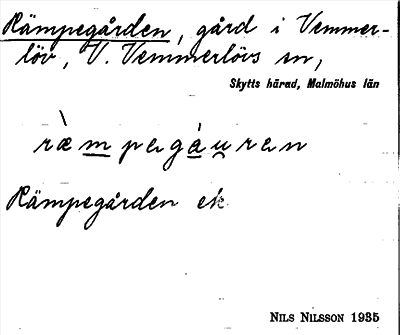 Rämpegården, gård i Vemmer-
löv, V. Vemmerlövs sn,
Skytts härad, Malmöhus län
ræ̀mpegáu̯ren
Rämpegården ek
NILS NILSSON 1935